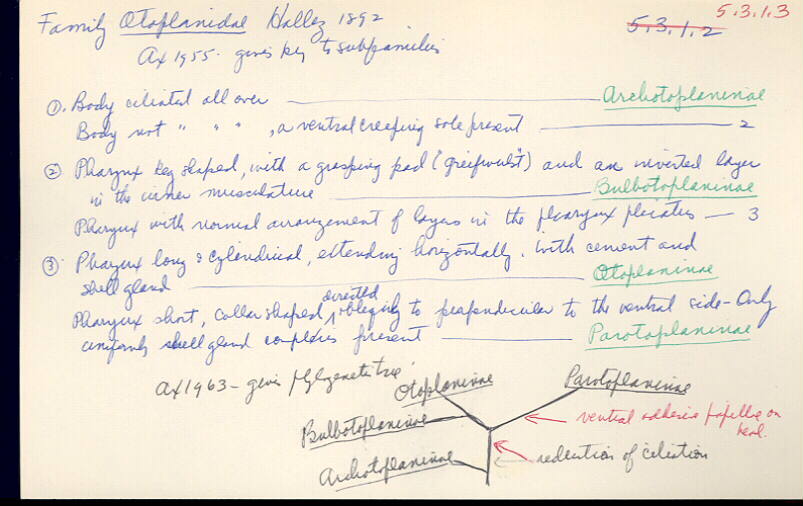 5.3.1.3
Family Otoplanidae Hallez 1892
5.3.1.2
Ax 1955. gives key to subfamilies
①. Body ciliated all over — Archotoplaninae
Body not " " " , a ventral creeping sole present — 2
② Pharynx keg shaped, with a grasping pad ("greifwulst") and an inverted layer
in the inner musculature — Bulbotoplaninae
Pharynx with normal arrangement of layers in the pharynx plicatus — 3
③ Pharynx long & cylindrical, extending horizontally. With cement and
shell gland — Otoplaninae
Pharynx short, collar shaped, directed obliquely to perpendicular to the ventral side - Only
uniform shell gland complexes present — Parotoplaninae
Ax 1963 - gives phylogenetic tree.
Otoplaninae
Parotoplaninae
Bulbotoplaninae
ventral adhesive papillae on
head.
Archotoplaninae
reduction of ciliation